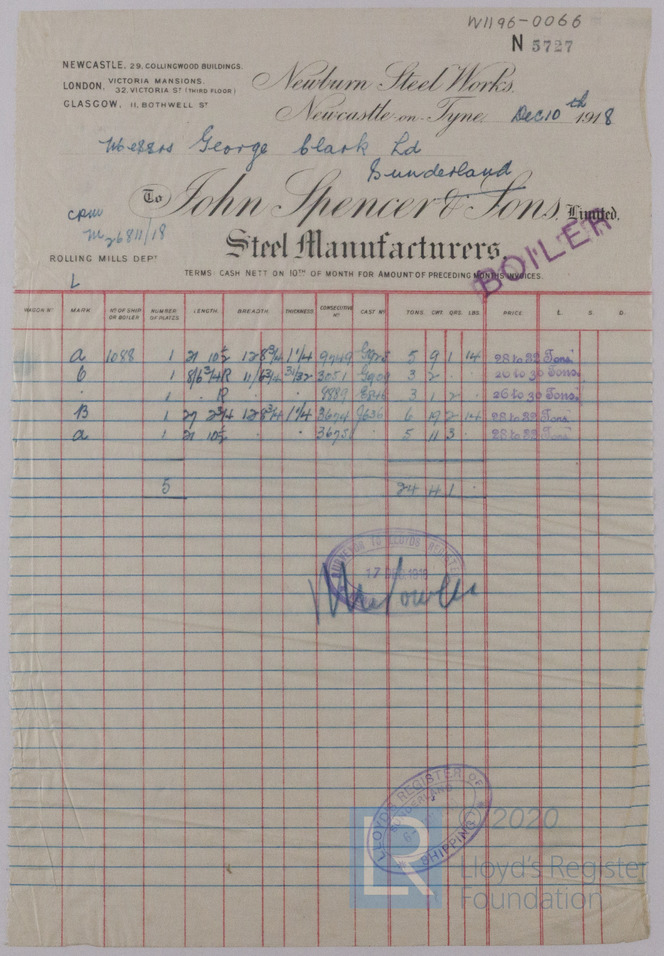 W1196-0066
N 5727
NEWCASTLE, 29, COLLINGWOOD BUILDINGS.
LONDON, VICTORIA MANSIONS, 32, VICTORIA ST (THIRD FLOOR)
GLASGOW, 11, BOTHWELL ST
Newburn Steel Works,
Newcastle-on-Tyne, Dec 10th 1918
Messrs George Clark Ld
Sunderland
To John Spencer & Sons, Limited,
Steel Manufacturers
BOILER
ROLLING MILLS DEPT
TERMS: CASH NETT ON 10TH OF MONTH FOR AMOUNT OF PRECEDING MONTHS INVOICES.
L
WAGON NO MARK NO OF SHIP OR BOILER NUMBER OF PLATES LENGTH BREADTH THICKNESS CONSECUTIVE NO CAST NO TONS CWT. QRS. LBS. PRICE £ S. D.
a 1088 1 21 10½ 12 8¾ 1 1/4 5 9 1 14 28 to 32 Tons
b 1 8/6¾ R 11/6¾ 31/32 3051 3 2 . . 26 to 30 Tons.
. 1 . R . . 3 1 2 . 26 to 30 Tons.
B 1 27 2¾ 12 8¾ 1 1/4 3674 6 19 2 14 28 to 32 Tons
a 1 21 10½ . . 3675 5 11 3 . 28 to 32 Tons
5 24 4 1 .
SURVEYOR TO LLOYDS REGISTER
17 DEC 1918
LLOYD'S REGISTER OF SHIPPING
SUNDERLAND
LR
© 2020
Lloyd's Register
Foundation